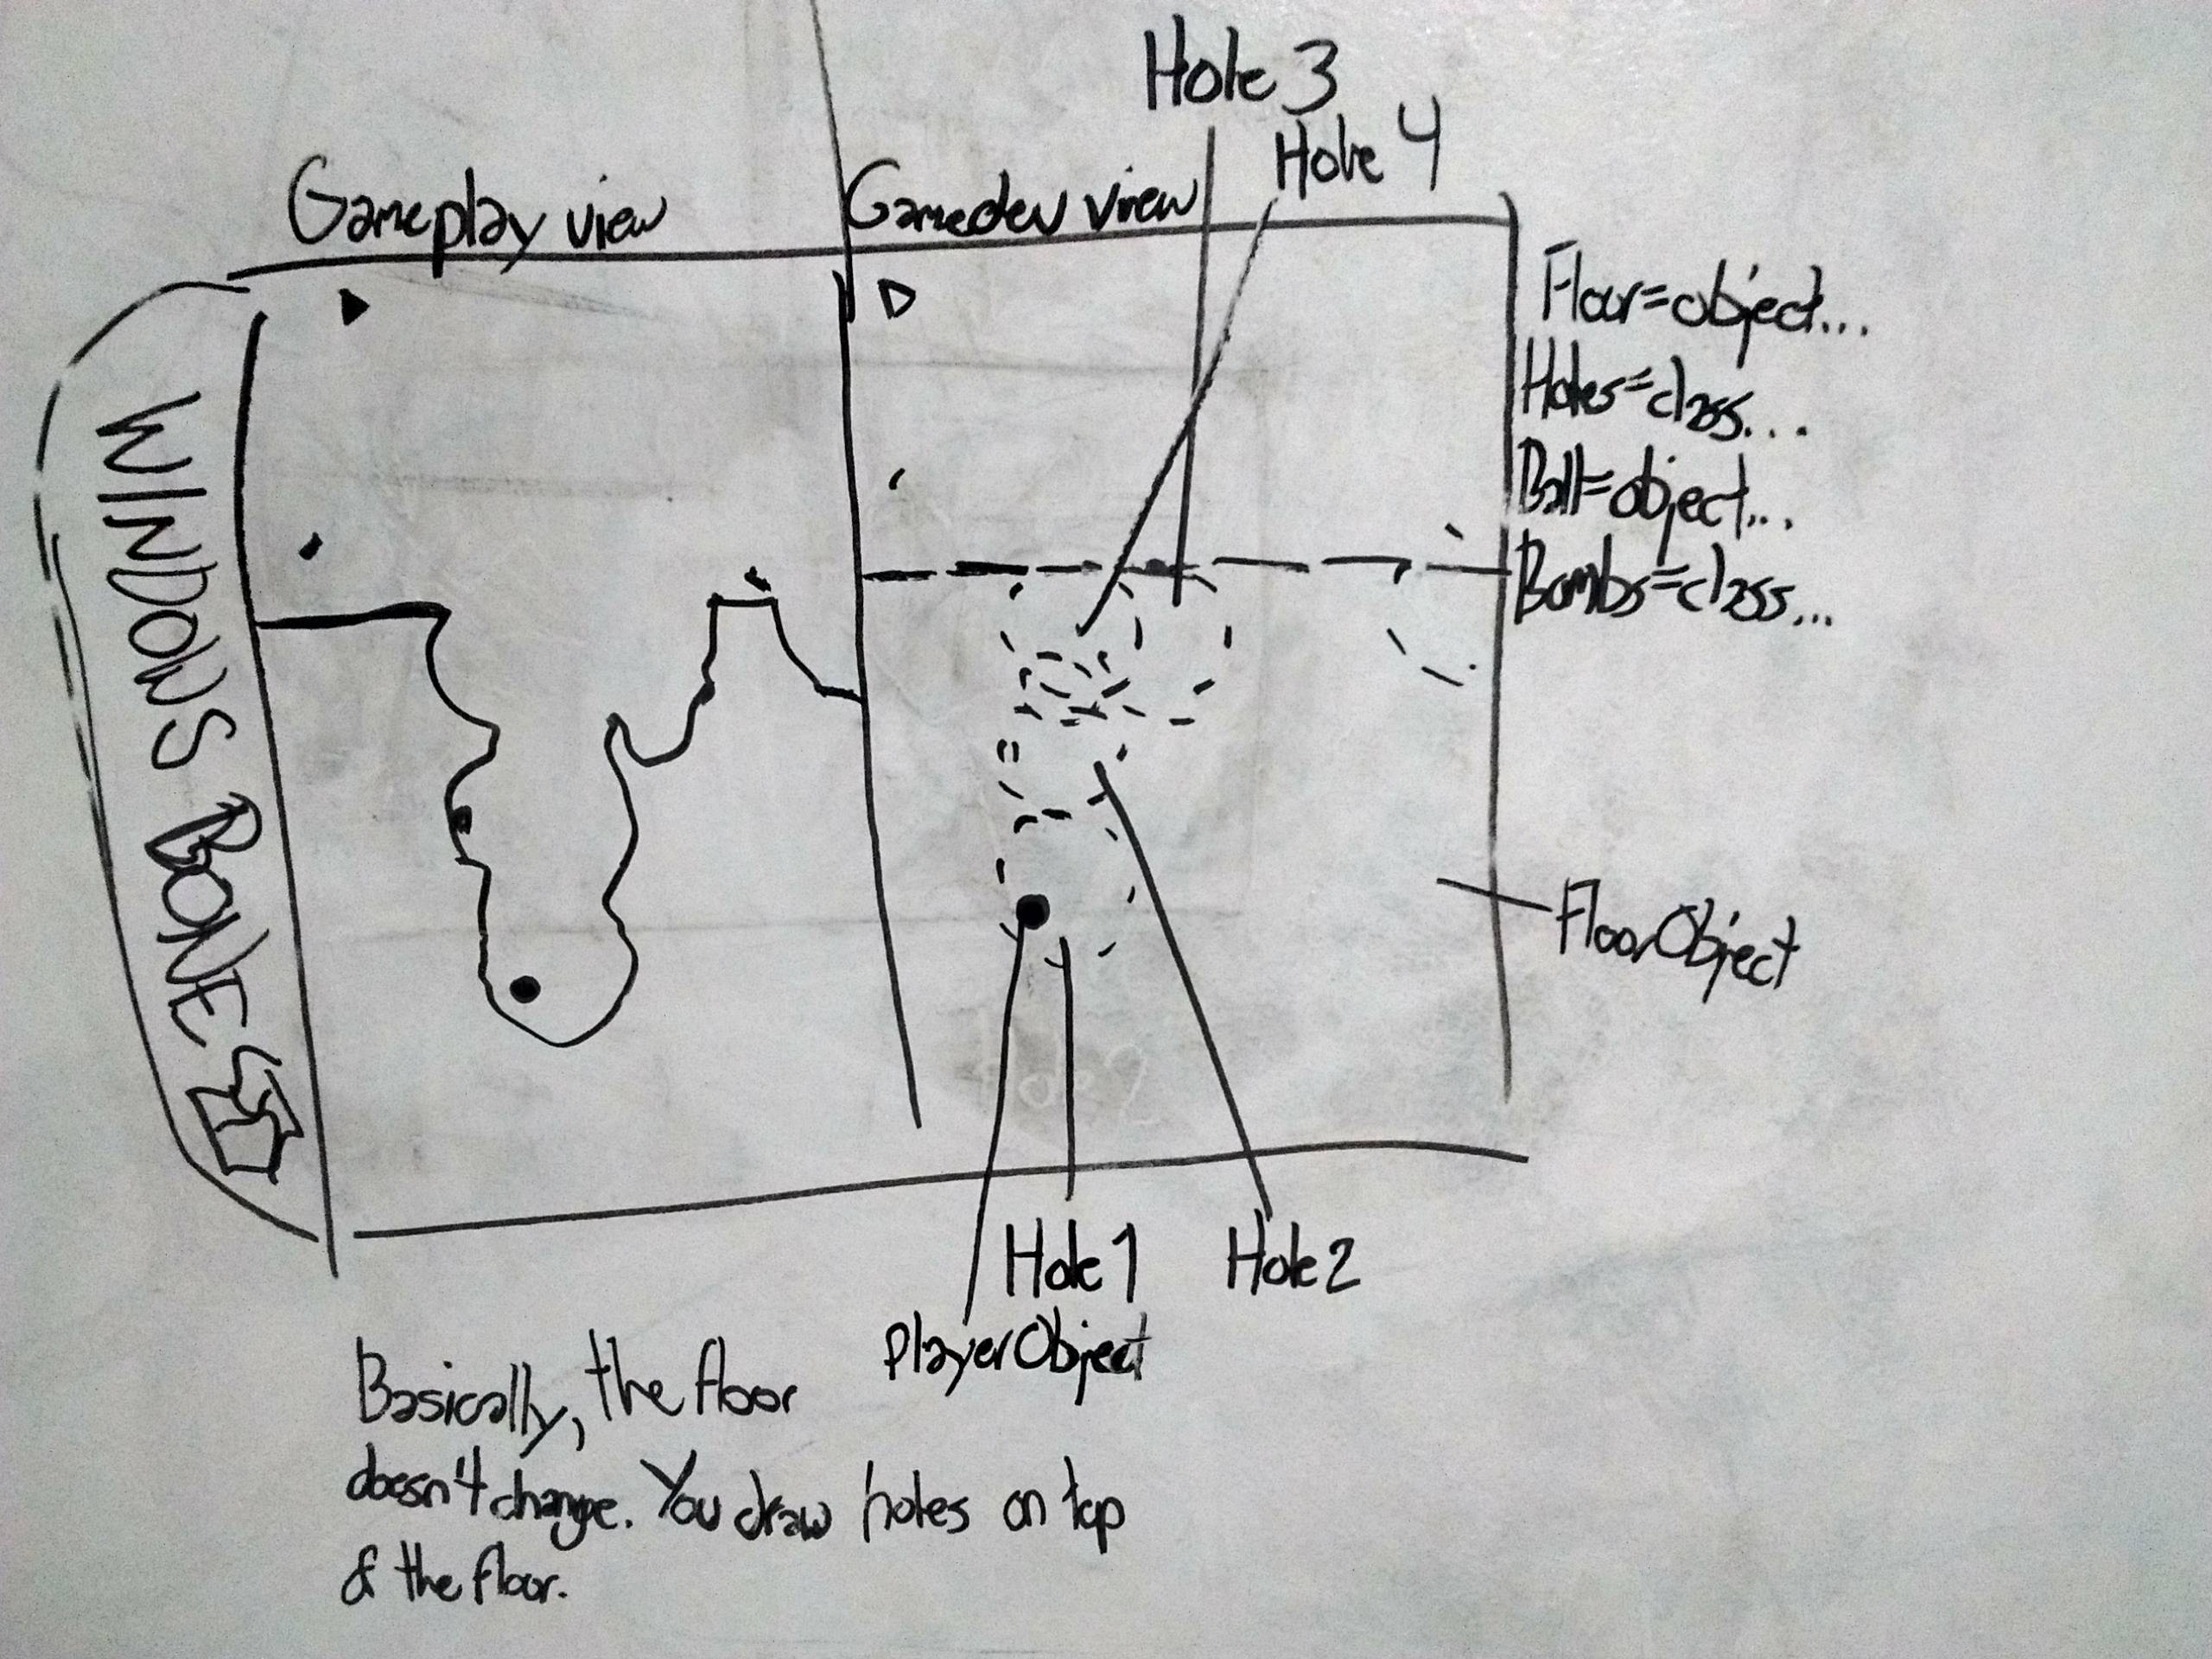 Hole 3
Hole 4
Gameplay view
Gamedev view
Floor=object...
Holes=class...
Ball=object...
Bombs=class...
WINDOWS BONES
FloorObject
Hole 1
Hole 2
PlayerObject
Basically, the floor
doesn't change. You draw holes on top
of the floor.